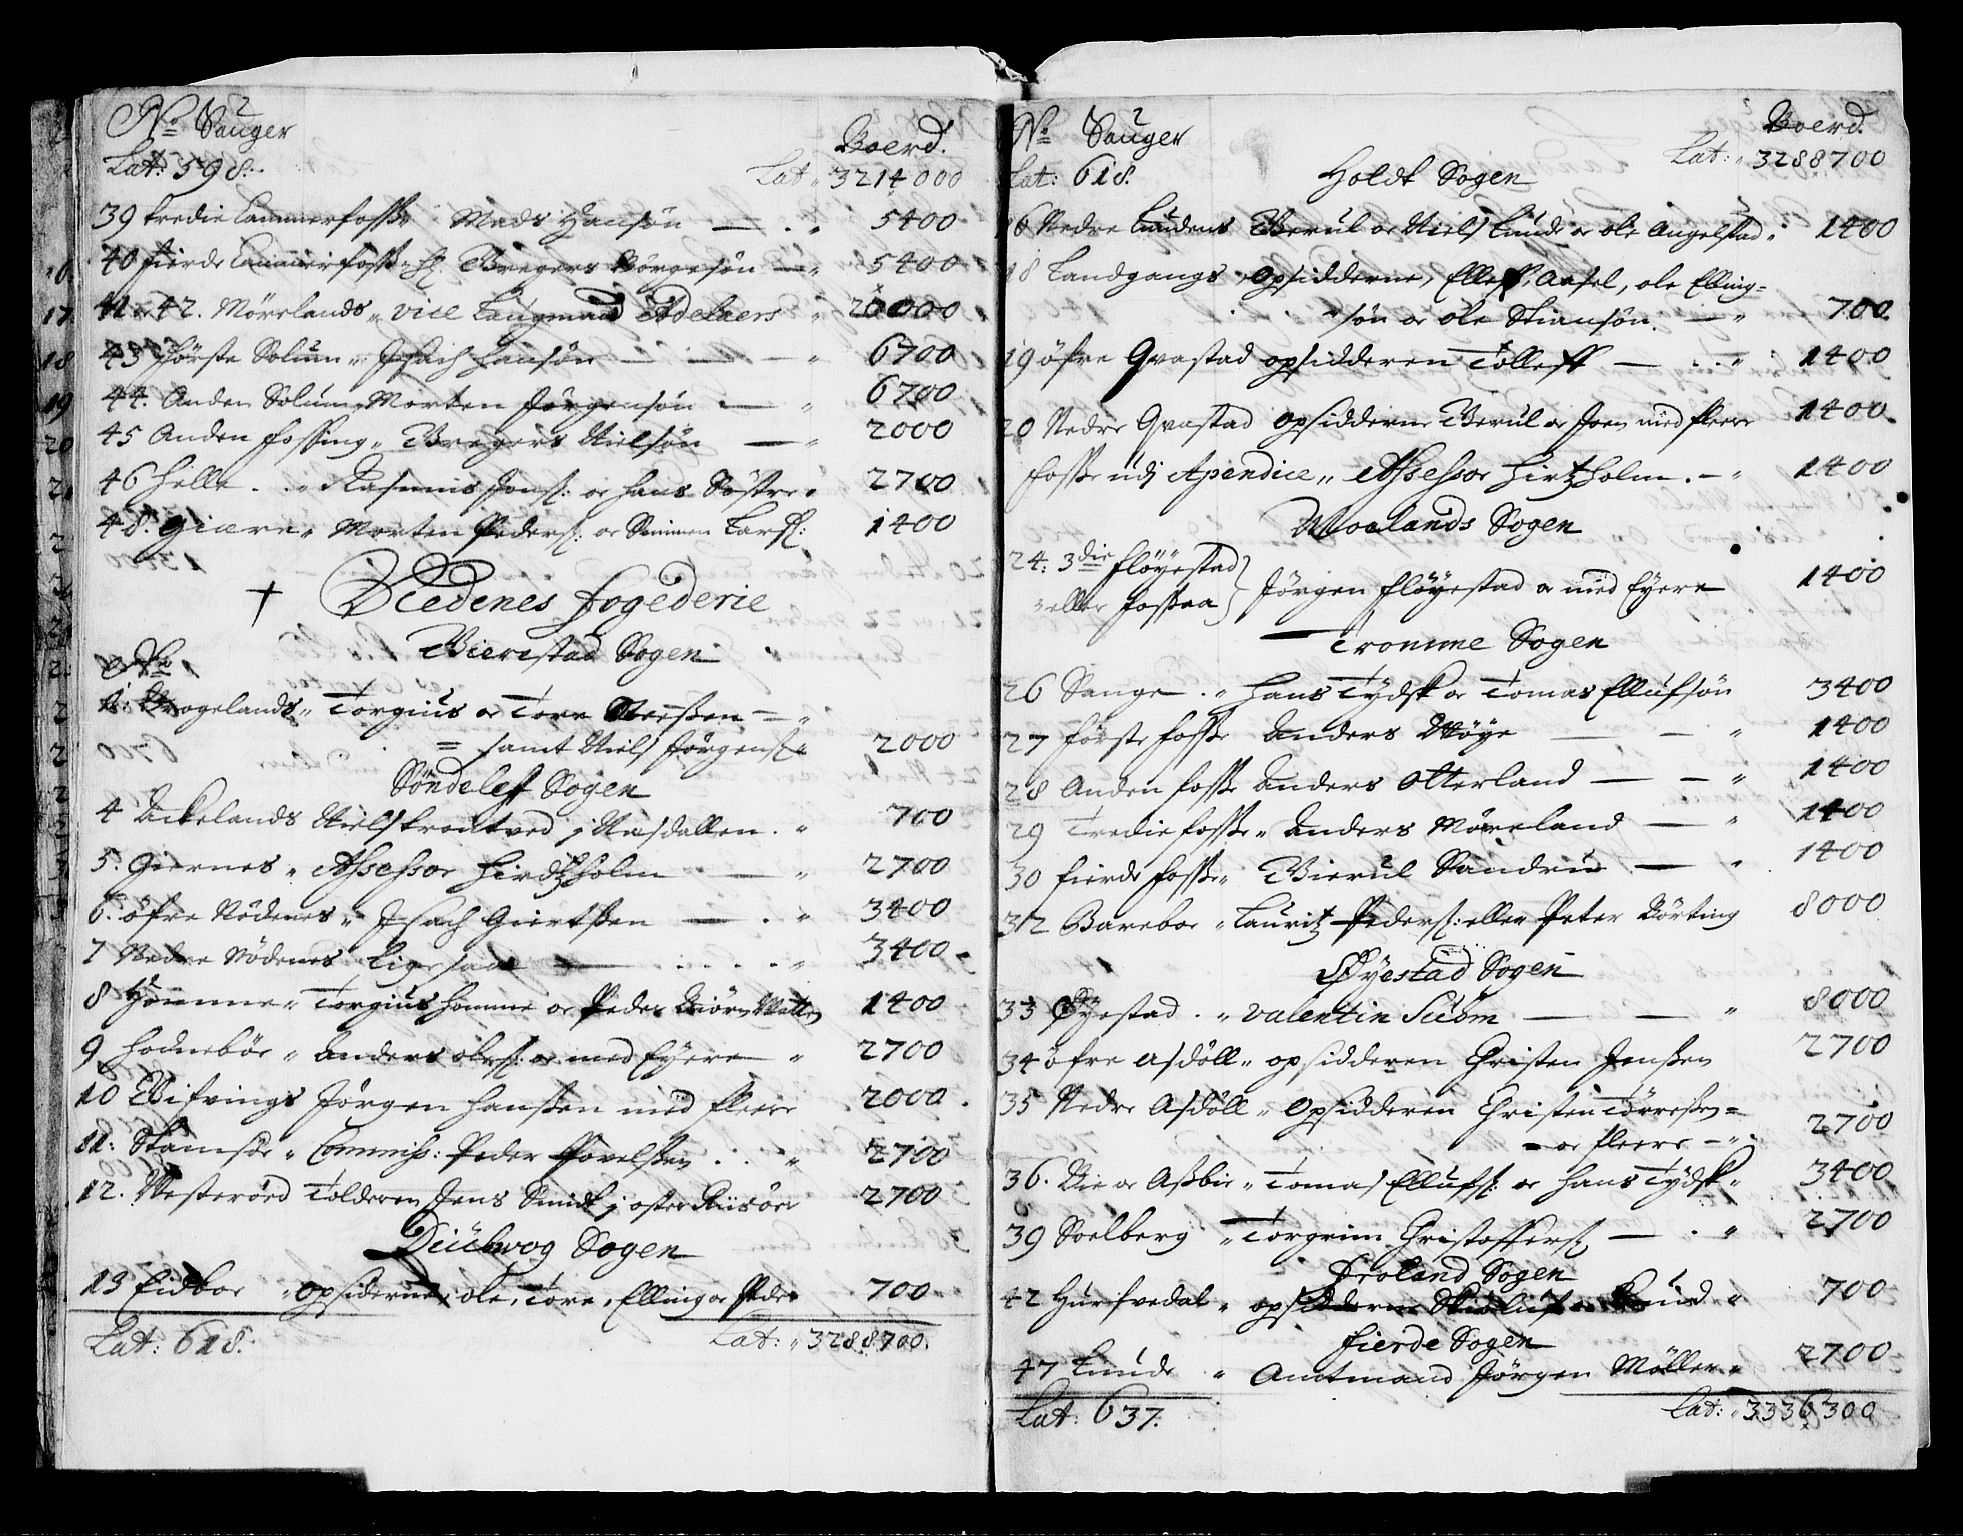 No Sauger
Boerd.
Lat: 598. Lat 3214000
39 tredie Cammerfosse Mads Hansøn 5400
40 fierde Cammerfosse Bregers Börgesøn 5400
41 42. Mørelands vice Laugmand Adelaers 20000
43 förste Solum Isach Hansøn 6700
44. Anden Solum Morten Jørgensøn 6700
45 Anden fossing Bregers Nielsøn 2000
46 Helle Rasmus Jons: oc Hans Søstre 2700
48. Giære Morten Peders: oc Simmen Lars: 1400
Nedenes fogederie
Bierestad Sogen
No
2. Wrogelands Torgius oc Tore
samt Niels Jørgens: 2000
Søndelef Sogen
4 Ackelands Niels krontved i Nasdallen 700
5. Giernes Assessor Hirdtzholm 2700
6. öfre Nödenes Isach Giertsen 3400
7 Nedre Nödenes Lige saa 3400
8 Homme Torgius Homme oc Peder Biørn Matten 1400
9 Hodnebøe Anders ols: oc med Eyere 2700
10 Wifvings Jørgen Hanssen med fleere 2000
11. Stamsøe Commiss: Peder Povelsen 2700
12. Westerød Tolderen Jens Smidt i oster Riisøer 2700
Diübwog Sogen
13 Eidboe opsiderne ole, Tore, Elling oc Peder 700
Lat: 618. Lat: 3288700.
No Sauger Boerd.
Lat: 618. Lat: 3288700
Holdt Sogen
16 Nedre Lundens Berul oc Niels Lunde oc ole Angelstad 1400
18 Landgangs opsidderne, Ellef, Aasel, ole Elling=
søn oc ole Stiansøn. 700
19 öfre Qvastad opsidderen Tolleff 1400
20 Nedre Qvastad opsidderne Berul oc Joen med fleere 1400
fosse udj Apendice Assessor Hirtzholm. 1400
Moelands Sogen
24. 3die Fløyestad
eller fossaa Jørgen Fløyestad oc med Eyere 1400
Tromme Sogen
26 Sange Hans Tydsk oc Tomas Ellufsøn 3400
27 förste fosse Anders Møye 1400
28 Anden fosse Anders Otterland 1400
29 Tredie fosse Anders Møreland 1400
30 fierde fosse Bierul Sandrue 1400
32 Bareboe Lauritz Peders: eller Peter Börting 8000
Øyestad Sogen
33 Øyestad Valentin Siöm 8000
34 öfre Asdöll opsidderen Christen Jenssen 2700
35 Nedre Asdöll opsidderen Christen Törressen=
oc fleere 2700
36. Bie oc Assbie Tomas Ellufs: oc Hans Tydsk 3400
39 Soelberg Torgrim Christoffers: 2700
Froland Sogen
42 Hurfvedal opsidderne oc Knud 700
Fierde Sogen
47 Lunde Amtmand Jörgen Möller 2700
Lat: 637. Lat: 3336300